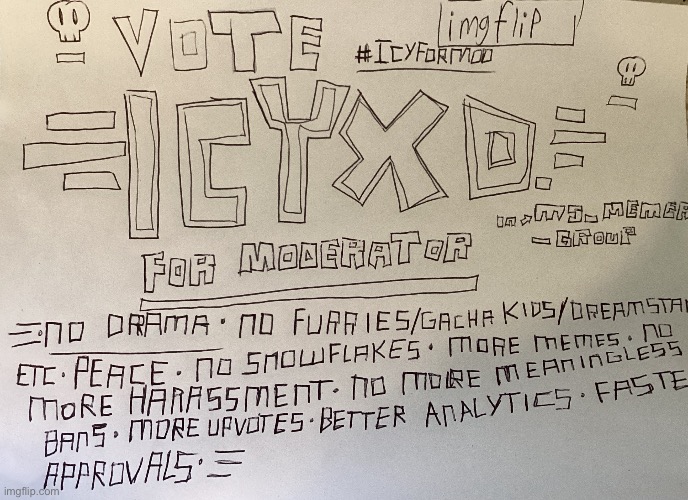 VOTE
imgflip
#ICYFORMOD
ICYXD.
In → MS_MEMER
- GROUP
FOR MODERATOR
· NO DRAMA · NO FURRIES/GACHA KIDS/DREAMSTA
ETC · PEACE · NO SNOWFLAKES · MORE MEMES · NO
MORE HARASSMENT · NO MORE MEANINGLESS
BANS · MORE UPVOTES · BETTER ANALYTICS · FASTE
APPROVALS ·
imgflip.com